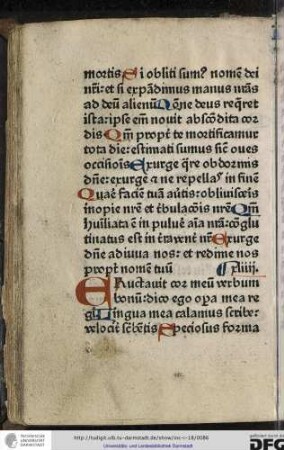 mortis Si obliti sum9 nomē dei
nr̄i: et si expādimus manus nr̄as
ad deū alienū Qōne deus req̄ret
ista: ipse em̄ nouit abscōdita cor
dis Qm̄ propt̄ te mortificamur
tota die: estimati sumus sicȝ oues
occisiōis Exurge q̄re obdormis
dn̄e: exurge ⁊ ne repellas in finē
Quare faciem tuā au̓tis: obliuisceris
inopie nr̄e et t̓bulacōis nr̄e Qm̄
huīliata ē in pulue̓ aīa nr̄a: cōglu
tinatus est in t̓ra vent̓ nr̄ Exurge
dn̄e adiuua nos: et redime nos
propt̓ nomē tuū ¶ xliiij.
Eructauit cor meū verbum
bonū: dico ego oꝑa mea re
gi Lingua mea calamus scribe:
velocit̓ sc̓bētis Speciosus forma
http://tudigit.ulb.tu-darmstadt.de/show/inc-i-18/0086
Universitäts- und Landesbibliothek Darmstadt
DFG